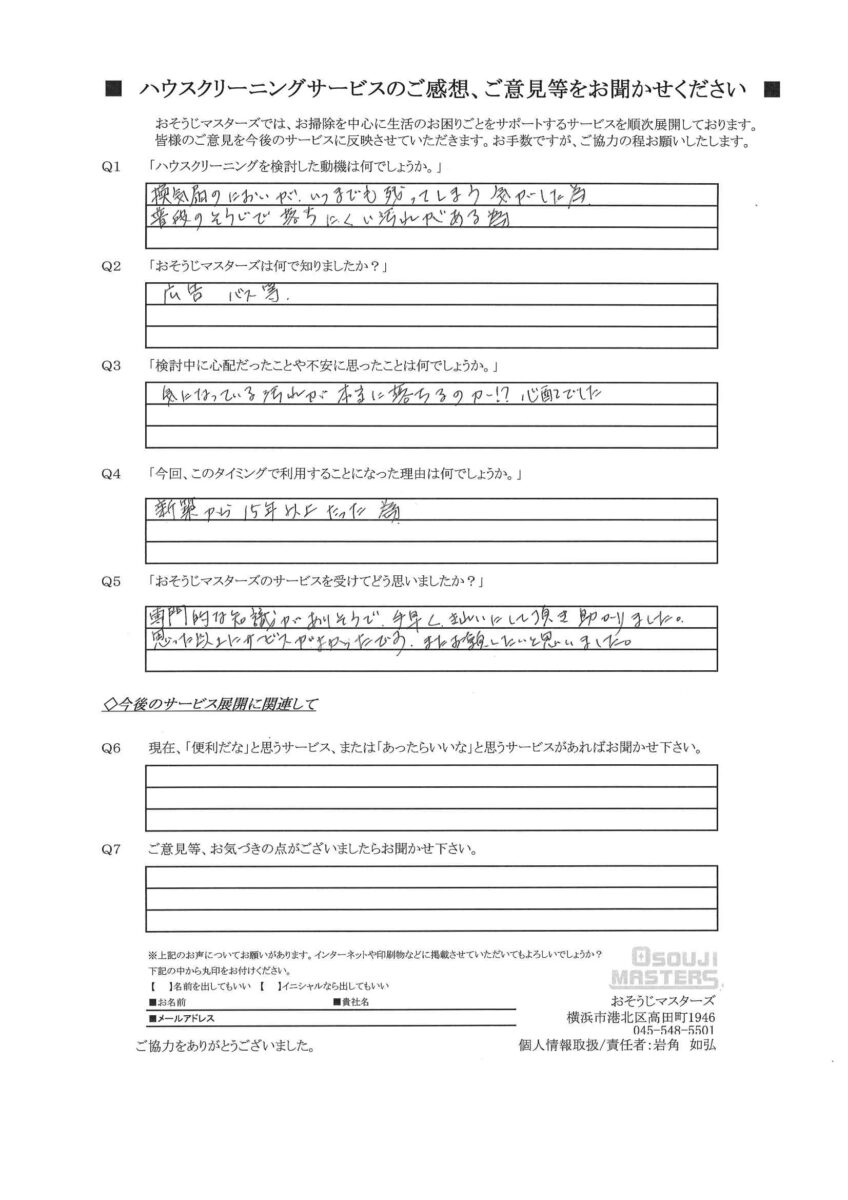 ■ ハウスクリーニングサービスのご感想、ご意見等をお聞かせください ■
おそうじマスターズでは、お掃除を中心に生活のお困りごとをサポートするサービスを順次展開しております。
皆様のご意見を今後のサービスに反映させていただきます。お手数ですが、ご協力の程お願いしたします。
Q1 「ハウスクリーニングを検討した動機は何でしょうか。」
換気扇のにおいが、いつまでも残ってしまう気がした為
普段のそうじで落ちにくい汚れがある為
Q2 「おそうじマスターズは何で知りましたか？」
広告 バス等.
Q3 「検討中に心配だったことや不安に思ったことは何でしょうか。」
気になっている汚れが本当に落ちるのかー!? 心配でした
Q4 「今回、このタイミングで利用することになった理由は何でしょうか。」
新築から15年以上たった為
Q5 「おそうじマスターズのサービスを受けてどう思いましたか？」
専門的な知識がありそうで、手早くきれいにして頂き助かりました。
思った以上にサービスがよかったです。またお願いしたいと思いました。
◇今後のサービス展開に関連して
Q6 現在、「便利だな」と思うサービス、または「あったらいいな」と思うサービスがあればお聞かせ下さい。
Q7 ご意見等、お気づきの点がございましたらお聞かせ下さい。
※上記のお声についてお願いがあります。インターネットや印刷物などに掲載させていただいてもよろしいでしょうか？
下記の中から丸印をお付けください。
【 】名前を出してもいい 【 】イニシャルなら出してもいい
■お名前 ■貴社名
■メールアドレス
ご協力をありがとうございました。
OSOUJI
MASTERS
おそうじマスターズ
横浜市港北区高田町1946
045-548-5501
個人情報取扱/責任者：岩角 如弘